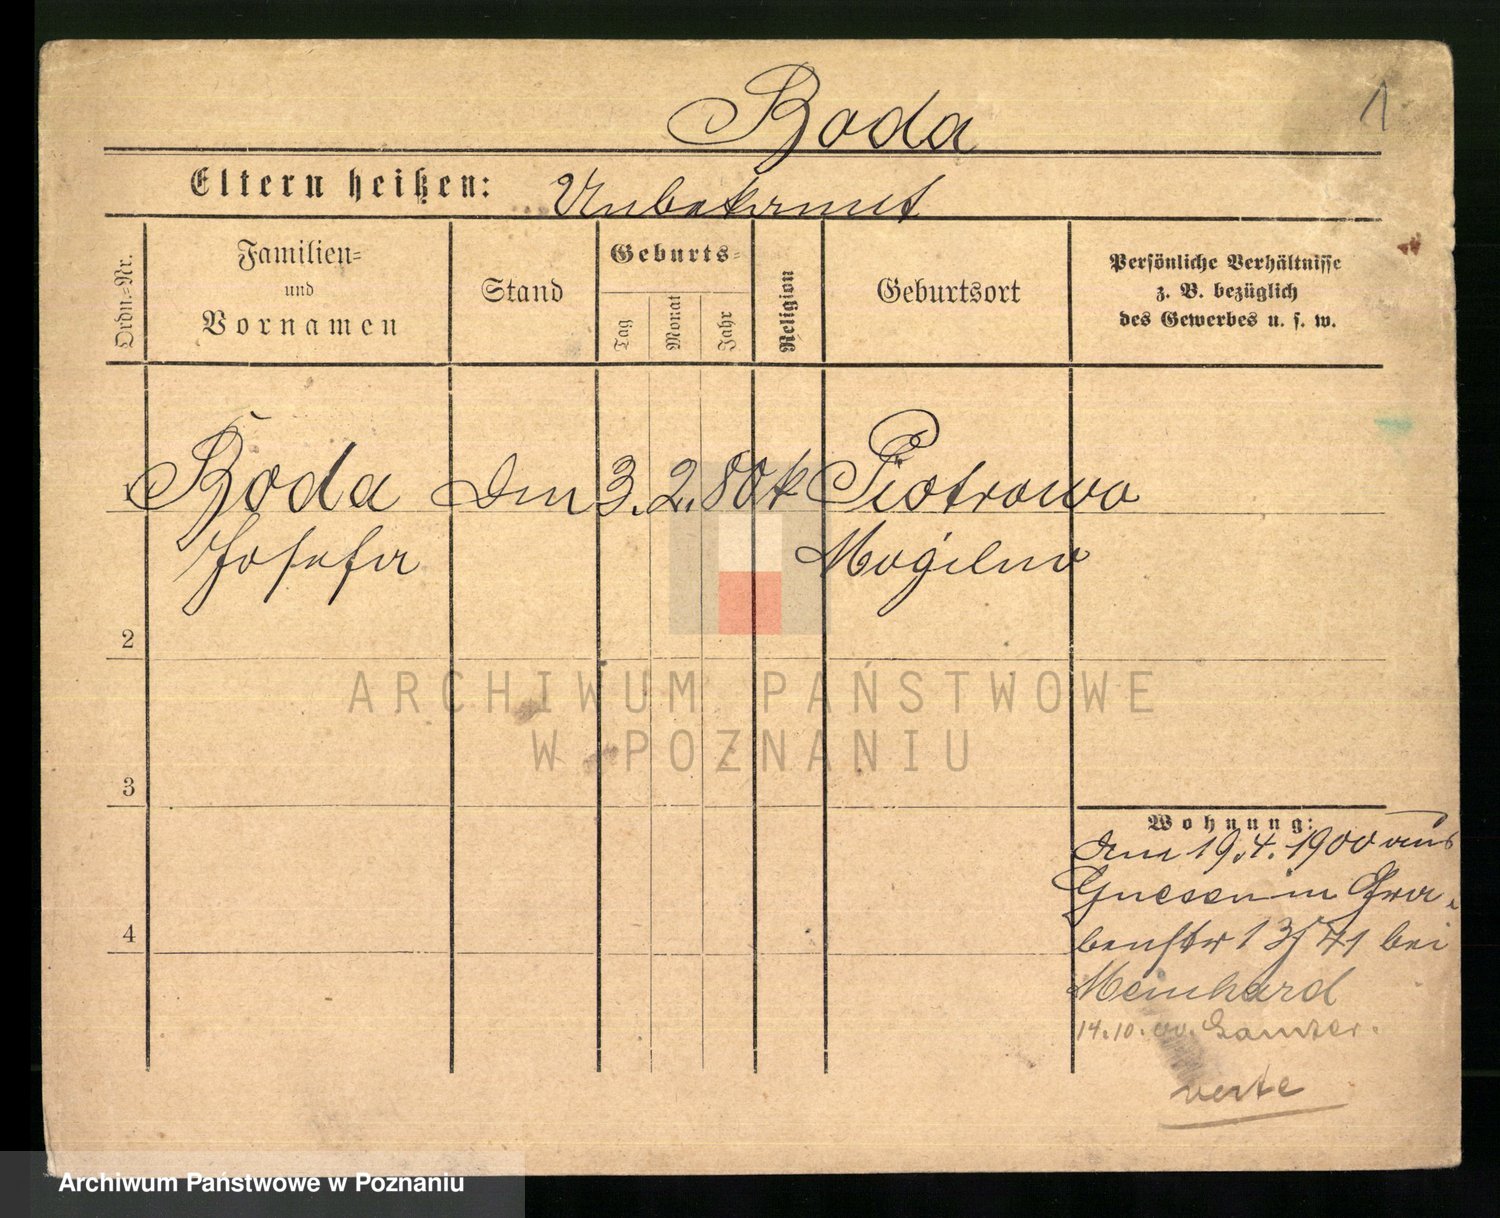 Boda
1
Eltern heißen: Unbekannt
Ordn.-Nr.
Familien- und Vornamen
Stand
Geburts-
Tag
Monat
Jahr
Religion
Geburtsort
Persönliche Verhältnisse
z. B. bezüglich
des Gewerbes u. s. w.
1 Boda 3. 2. 80 k Piotrowo
Josefa Mogilno
2
ARCHIWUM PAŃSTWOWE
W POZNANIU
3
Wohnung:
19.4.1900 aus
Gnesen in Gra-
benstr 13 bei
Meinhard
14.10.00.
verte
4
Archiwum Państwowe w Poznaniu